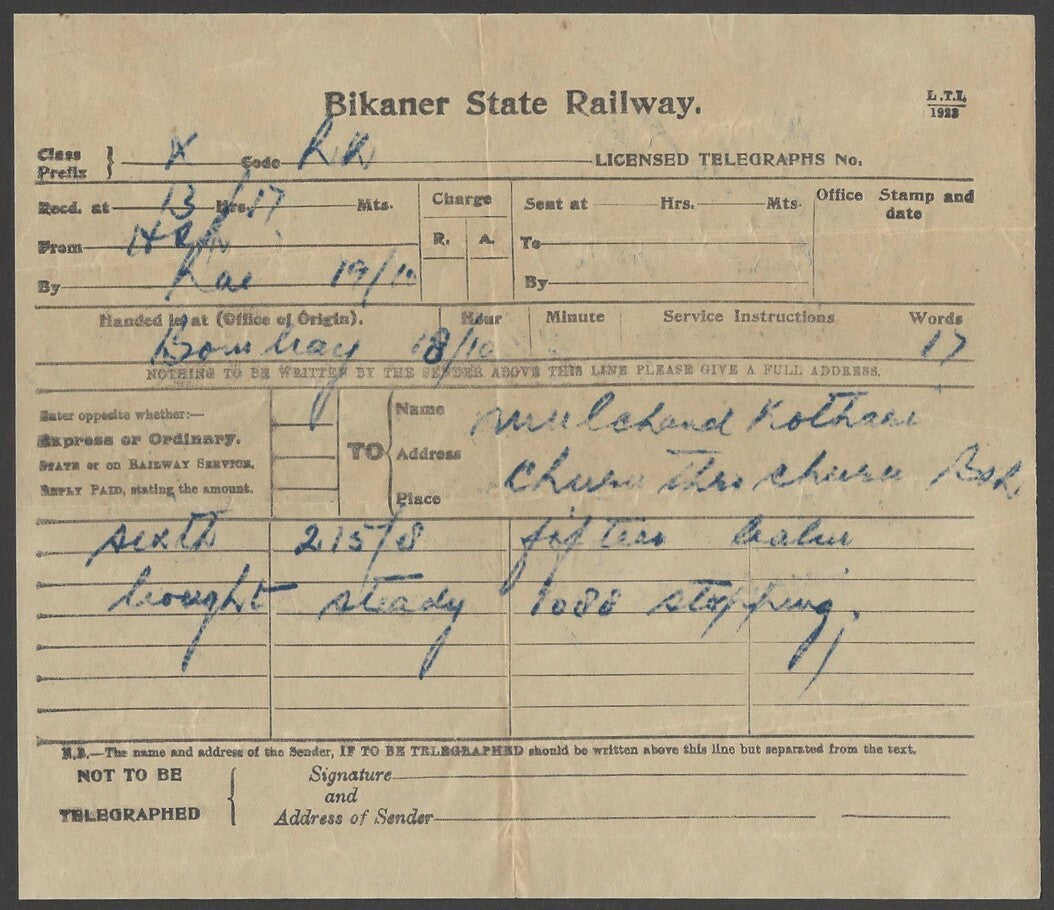 Bikaner State Railway.
L.T.I.
1923
Class
Prefix } X Code RR LICENSED TELEGRAPHS No.
Recd. at 13 Hrs. 17 Mts. Charge Sent at Hrs. Mts. Office Stamp and date
From R. A. To
By 19/10 By
Handed in at (Office of Origin). Hour Minute Service Instructions Words
Bombay 18/10 17
NOTHING TO BE WRITTEN BY THE SENDER ABOVE THIS LINE PLEASE GIVE A FULL ADDRESS.
Enter opposite whether:— TO Name Mulchand Kothari
Express or Ordinary.
STATE or on RAILWAY SERVICE. Address Churu thro churu
REPLY PAID, stating the amount. Place
sixth 215/8 fifteen
bought steady 1088 stopping
N.B.—The name and address of the Sender, IF TO BE TELEGRAPHED should be written above this line but separated from the text.
NOT TO BE Signature
and
TELEGRAPHED Address of Sender